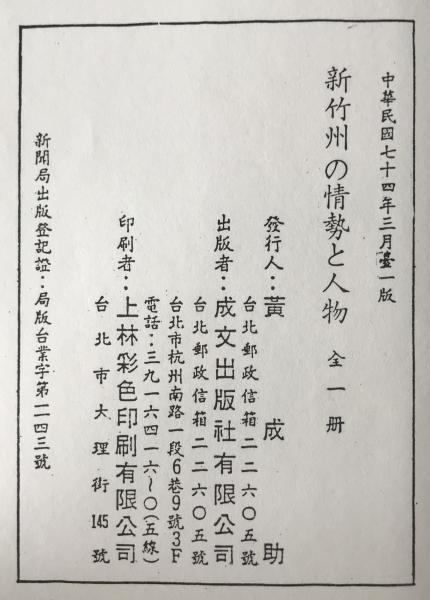 中華民國七十四年三月臺一版
新竹州の情勢と人物 全一冊
發行人：黃成助
台北郵政信箱二二六〇五號
出版者：成文出版社有限公司
台北郵政信箱二二六〇五號
台北市杭州南路一段6巷9號3F
電話：三九一六四一六～〇(五線)
印刷者：上林彩色印刷有限公司
台北市大理街145號
新聞局出版登記證：局版台業字第一一四三號